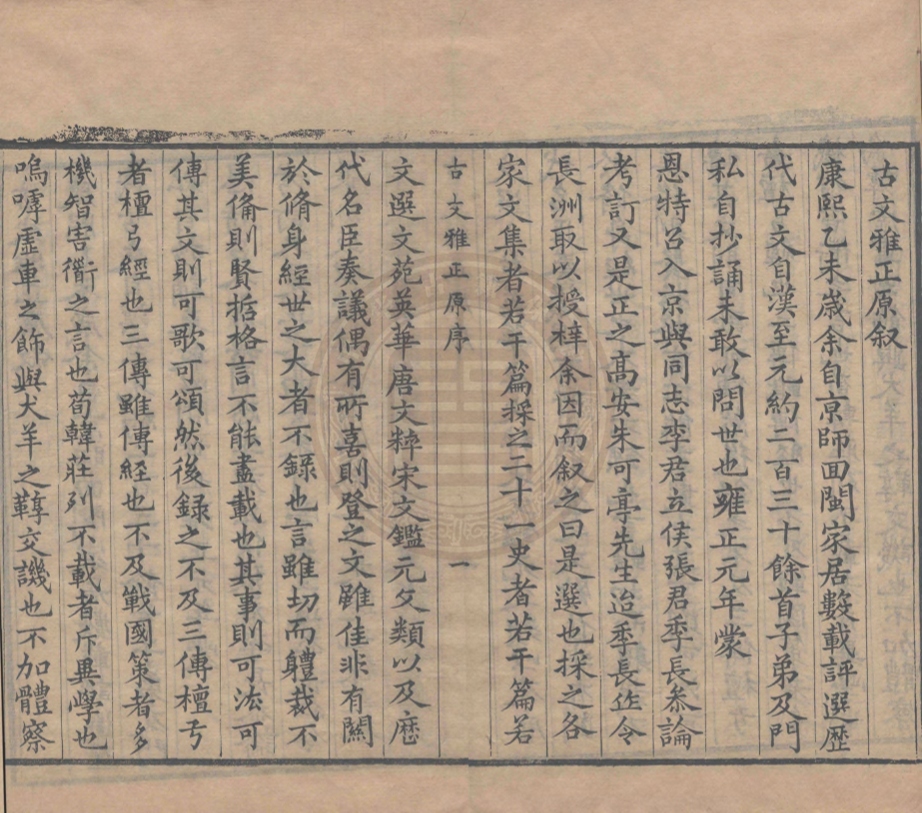 古文雅正原叙
康熙乙未歲余自京師回閩家居數載評選歷
代古文自漢至元約二百三十餘首子弟及門
私自抄誦未敢以問世也雍正元年蒙
恩特召入京與同志李君立侯張君季長叅論
考訂又是正之高安朱可亭先生迨季長作令
長洲取以授梓余因而叙之曰是選也採之各
家文集者若干篇採之二十一史者若干篇若
古文雅正原序 一
文選文苑英華唐文粹宋文鑑元文類以及歷
代名臣奏議偶有所喜則登之文雖佳非有關
於脩身經世之大者不錄也言雖切而體裁不
美備則賢哲格言不能盡載也其事則可法可
傳其文則可歌可頌然後錄之不及三傳檀弓
者檀弓經也三傳雖傳經也不及戰國策者多
機智害衛之言也荀韓莊列不載者斥異學也
嗚嘑虛車之飾與犬羊之鞟交譏也不加體察